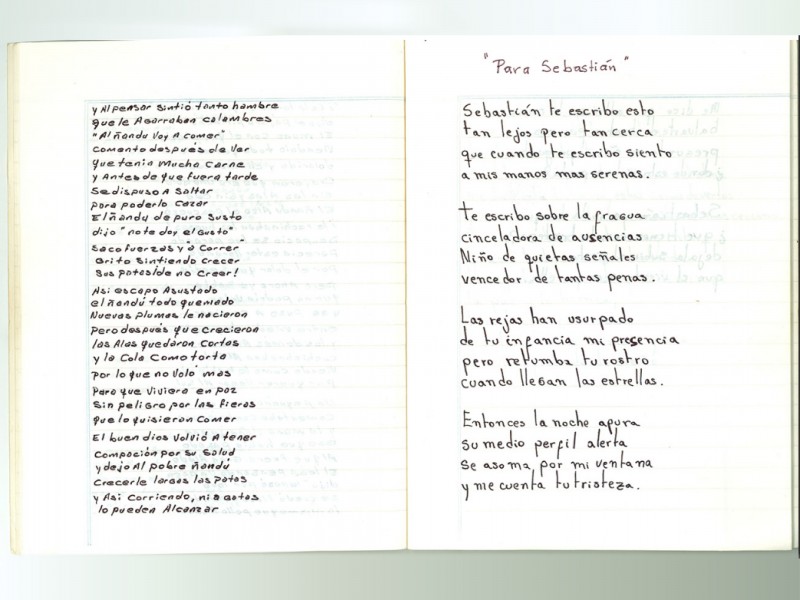 y Al pensar sintió tanto hambre
que le Agarraban calambres
"Al ñandú voy A comer"
Comento después de Ver
que tenía mucha Carne
y Antes de que fuera tarde
Se dispuso A Saltar
para poderlo Cazar
El ñandú de puro Susto
dijo "no te doy el Gusto"
Saco fuerzas y "a Correr"
Grito Sintiendo Crecer
Sus patas ¡de no Creer!
Asi escapo Asustado
el ñandú todo quemado
Nuevas plumas le nacieron
Pero después que crecieron
las Alas quedaron Cortas
y la Cola Como torta
Por lo que no Voló mas
Para que Viviera en paz
Sin peligro por las fieras
que lo quisieron Comer
El buen dios volvió A tener
Compación por Su Salud
y dejo Al pobre ñandú
Crecerle largas las Patas
y Asi Corriendo, ni a Gatas
lo pueden Alcanzar
"Para Sebastián"
Sebastián te escribo esto
tan lejos pero tan cerca
que cuando te escribo siento
a mis manos mas serenas.
Te escribo sobre la fragua
cinceladora de ausencias
Niño de quietas señales
vencedor de tantas penas.
Las rejas han usurpado
de tu infancia mi presencia
pero retumba tu rostro
cuando llegan las estrellas.
Entonces la noche apura
su medio perfil alerta
se asoma por mi ventana
y me cuenta tu tristeza.